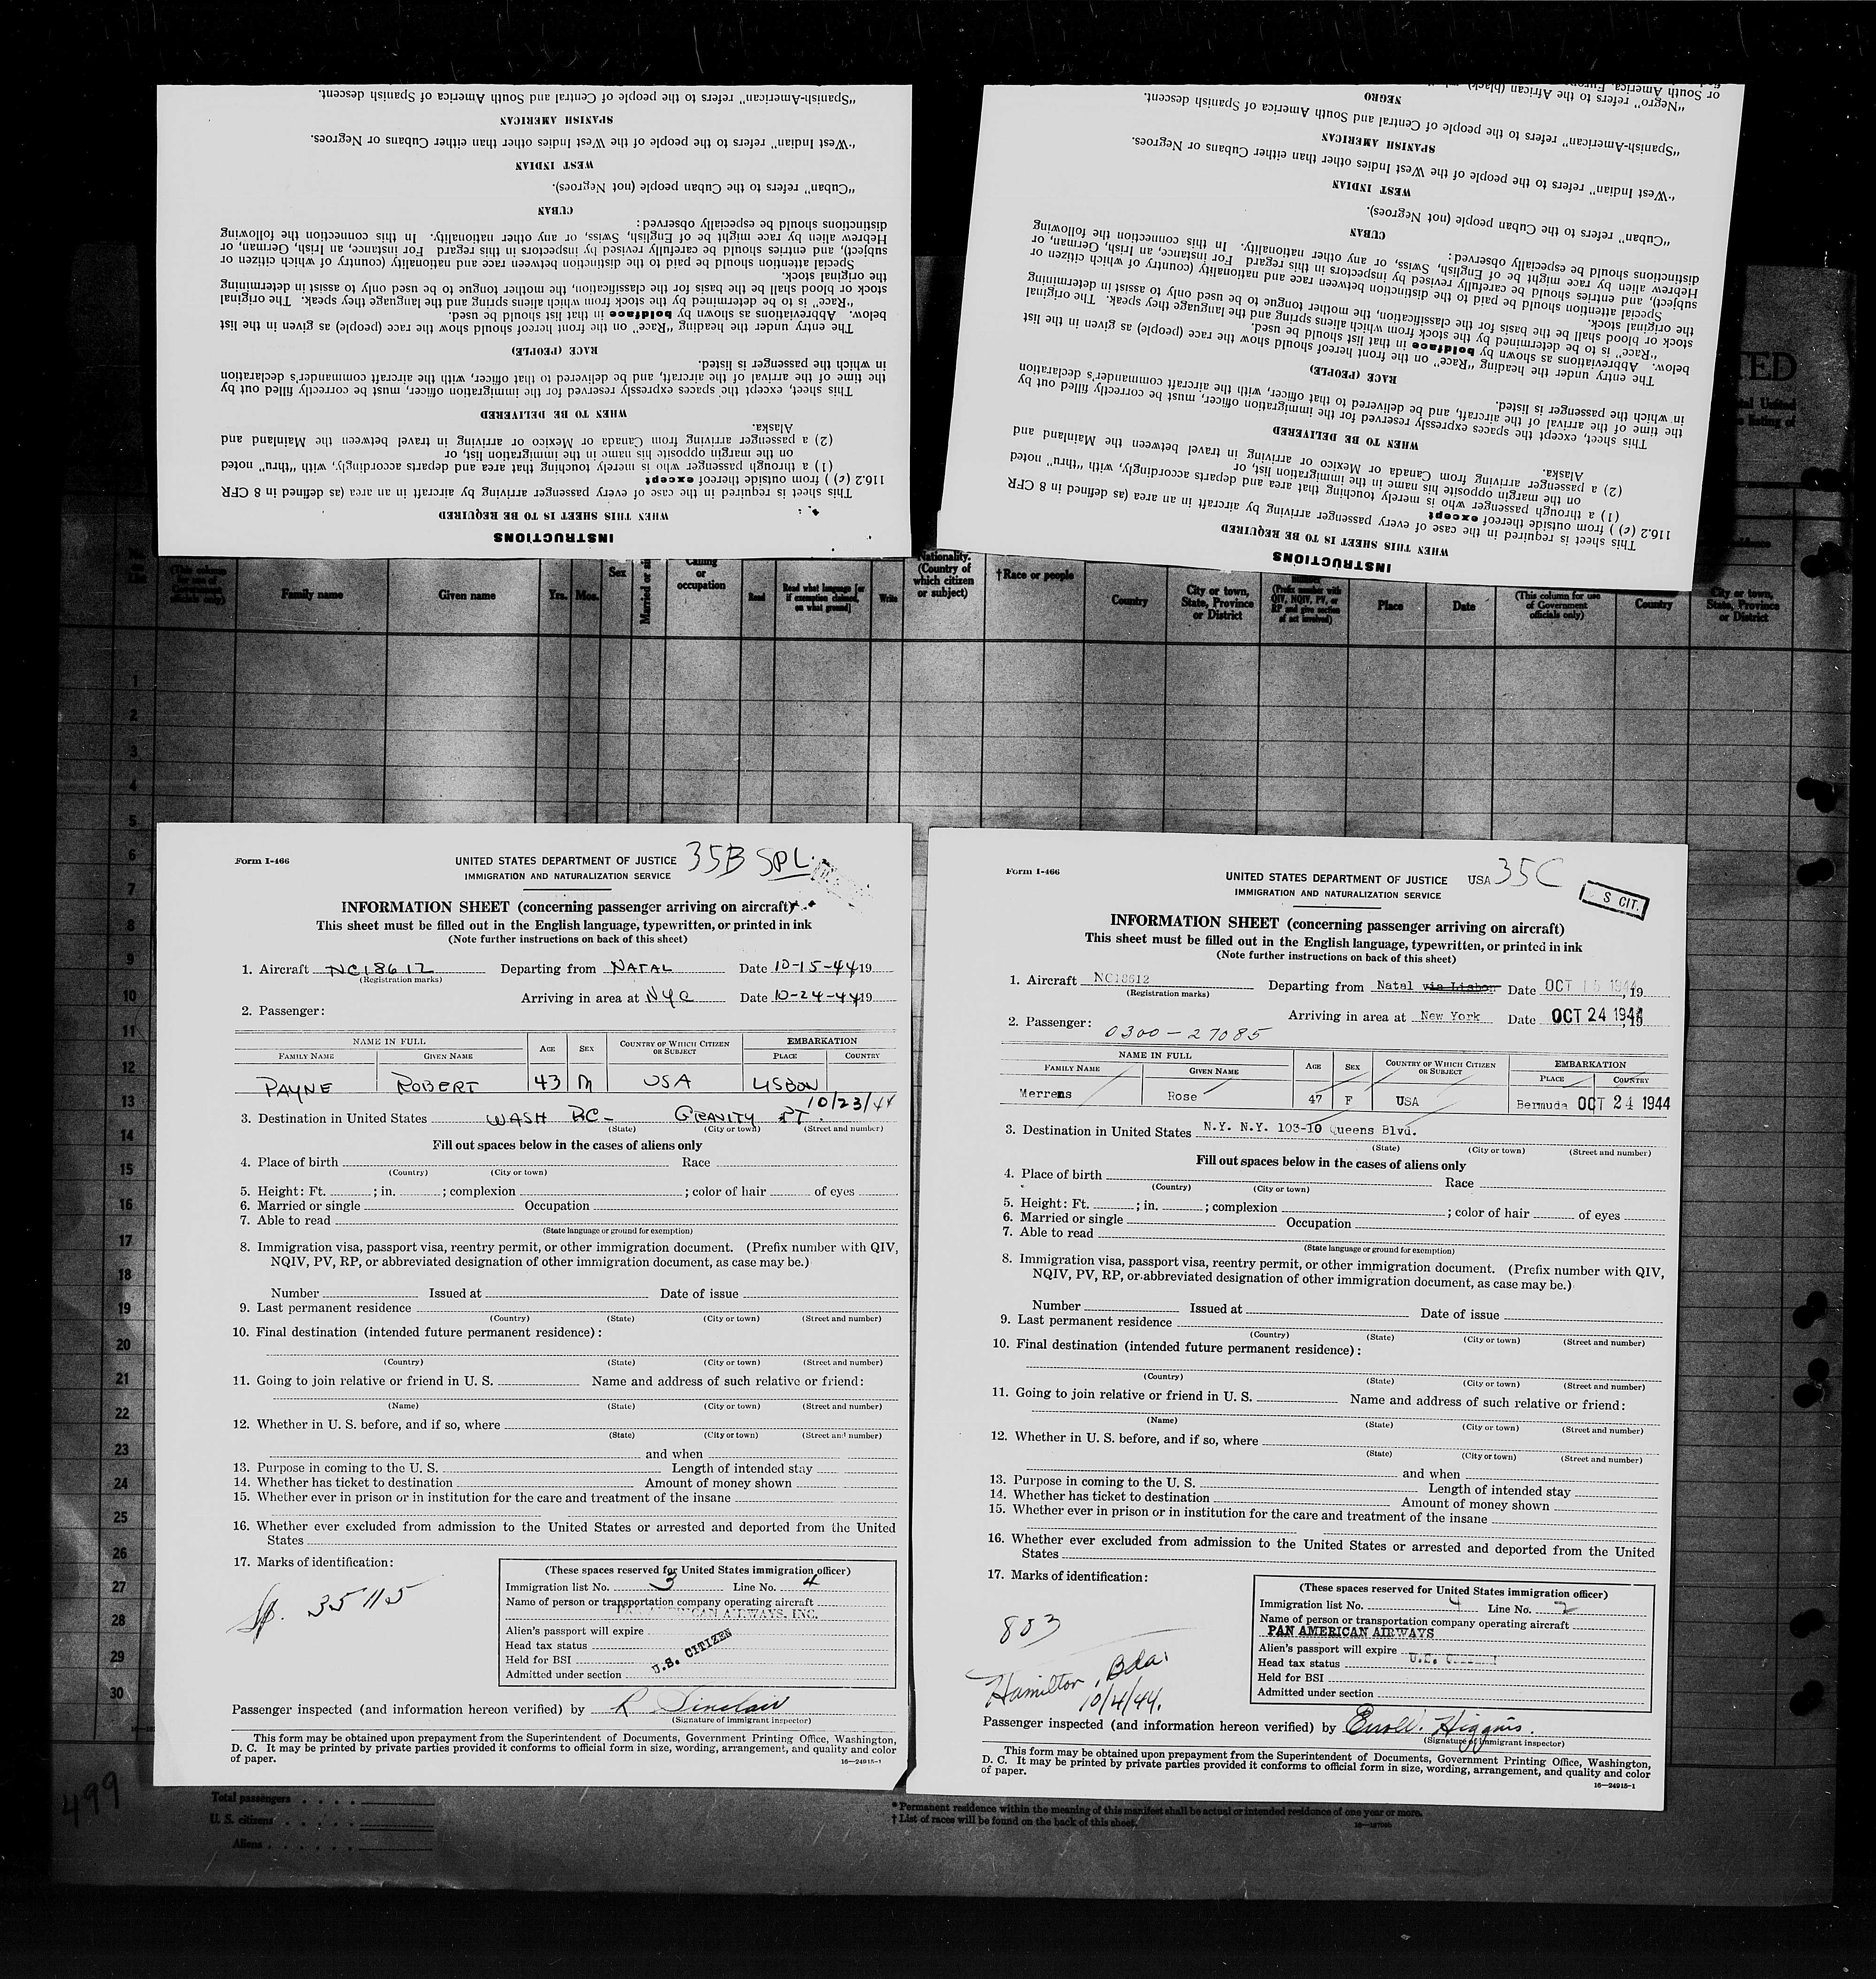 "Spanish-American" refers to the people of Central and South America of Spanish descent.
SPANISH AMERICAN
"West Indian" refers to the people of the West Indies other than either Cubans or Negroes.
WEST INDIAN
"Cuban" refers to the Cuban people (not Negroes).
CUBAN
distinctions should be especially observed:
Hebrew alien by race might be of English, Swiss, or any other nationality. In this connection the following
subject), and entries should be carefully revised by inspectors in this regard For instance, an Irish, German, or
Special attention should be paid to the distinction between race and nationality (country of which citizen or
the original stock.
stock or blood shall be the basis for the classification, the mother tongue to be used only to assist in determining
"Race" is to be determined by the stock from which aliens spring and the language they speak. The original
below. Abbreviations as shown by boldface in that list should be used.
The entry under the heading "Race" on the front hereof should show the race (people) as given in the list
RACE (PEOPLE)
in which the passenger is listed.
the time of the arrival of the aircraft, and be delivered to that officer, with the aircraft commander's declaration
This sheet, except the spaces expressly reserved for the immigration officer, must be correctly filled out by
WHEN TO BE DELIVERED
Alaska.
(2) a passenger arriving from Canada or Mexico or arriving in travel between the Mainland and
on the margin opposite his name in the immigration list, or
(1) a through passenger who is merely touching that area and departs accordingly, with "thru" noted
116.2 (c) ) from outside thereof except
This sheet is required in the case of every passenger arriving by aircraft in an area (as defined in 8 CFR
WHEN THIS SHEET IS TO BE REQUIRED
INSTRUCTIONS
or South America, 
"Negro" refers to the African (black)
NEGRO
"Spanish-American" refers to the people of Central and South America of Spanish descent.
SPANISH AMERICAN
"West Indian" refers to the people of the West Indies other than either Cubans or Negroes.
WEST INDIAN
"Cuban" refers to the Cuban people (not Negroes).
CUBAN
distinctions should be especially observed:
Hebrew alien by race might be of English, Swiss, or any other nationality. In this connection the following
subject), and entries should be carefully revised by inspectors in this regard For instance, an Irish, German, or
Special attention should be paid to the distinction between race and nationality (country of which citizen or
the original stock.
stock or blood shall be the basis for the classification, the mother tongue to be used only to assist in determining
"Race" is to be determined by the stock from which aliens spring and the language they speak. The original
below. Abbreviations as shown by boldface in that list should be used.
The entry under the heading "Race" on the front hereof should show the race (people) as given in the list
RACE (PEOPLE)
in which the passenger is listed.
the time of the arrival of the aircraft, and be delivered to that officer, with the aircraft commander's declaration
This sheet, except the spaces expressly reserved for the immigration officer, must be correctly filled out by
WHEN TO BE DELIVERED
Alaska.
(2) a passenger arriving from Canada or Mexico or arriving in travel between the Mainland and
on the margin opposite his name in the immigration list, or
(1) a through passenger who is merely touching that area and departs accordingly, with "thru" noted
116.2 (c) ) from outside thereof except
This sheet is required in the case of every passenger arriving by aircraft in an area (as defined in 8 CFR
WHEN THIS SHEET IS TO BE REQUIRED
INSTRUCTIONS
TED
United
listing of
(This column for use of Government officials only)
Family name
Given name
Yrs.
Mos.
Sex
Married or si
Calling or occupation
Read
Read what language [or if exemption claimed, on what ground]
Write
Nationality. (Country of which citizen or subject)
†Race or people
Country
City or town, State, Province or District
(Prefix number with QIV, NQIV, PV, or RP and give section of act involved)
Place
Date
(This column for use of Government officials only)
Country
City or town, State, Province or District
1
2
3
4
5
6
7
8
9
10
11
12
13
14
15
16
17
18
19
20
21
22
23
24
25
26
27
28
29
30
Form I-466
UNITED STATES DEPARTMENT OF JUSTICE 35B SPL.
IMMIGRATION AND NATURALIZATION SERVICE
INFORMATION SHEET (concerning passenger arriving on aircraft)
This sheet must be filled out in the English language, typewritten, or printed in ink
(Note further instructions on back of this sheet)
1. Aircraft NC18612 Departing from NATAL Date 10-15-44 19
(Registration marks)
Arriving in area at NYC Date 10-24-44 19
2. Passenger:
NAME IN FULL AGE SEX COUNTRY OF WHICH CITIZEN OR SUBJECT EMBARKATION
FAMILY NAME GIVEN NAME PLACE COUNTRY
PAYNE ROBERT 43 M USA LISBON
10/23/44
3. Destination in United States WASH DC- GRAVITY PT.
(State) (City or town) (Street and number)
Fill out spaces below in the cases of aliens only
4. Place of birth Race
(Country) (City or town)
5. Height: Ft. ; in. ; complexion ; color of hair of eyes
6. Married or single Occupation
7. Able to read
(State language or ground for exemption)
8. Immigration visa, passport visa, reentry permit, or other immigration document. (Prefix number with QIV,
NQIV, PV, RP, or abbreviated designation of other immigration document, as case may be.)
Number Issued at Date of issue
9. Last permanent residence
(Country) (State) (City or town) (Street and number)
10. Final destination (intended future permanent residence):
(Country) (State) (City or town) (Street and number)
11. Going to join relative or friend in U. S. Name and address of such relative or friend:
(Name) (State) (City or town) (Street and number)
12. Whether in U. S. before, and if so, where
(State) (City or town) (Street and number)
and when
13. Purpose in coming to the U. S. Length of intended stay
14. Whether has ticket to destination Amount of money shown
15. Whether ever in prison or in institution for the care and treatment of the insane
16. Whether ever excluded from admission to the United States or arrested and deported from the United
States
17. Marks of identification:
35115
(These spaces reserved for United States immigration officer)
Immigration list No. 3 Line No. 4
Name of person or transportation company operating aircraft
PAN AMERICAN AIRWAYS, INC.
Alien's passport will expire
Head tax status
Held for BSI U.S. CITIZEN
Admitted under section
Passenger inspected (and information hereon verified) by R Sinclair
(Signature of immigrant inspector)
This form may be obtained upon prepayment from the Superintendent of Documents, Government Printing Office, Washington,
D. C. It may be printed by private parties provided it conforms to official form in size, wording, arrangement, and quality and color
of paper.
16—24915-1
Form I-466
UNITED STATES DEPARTMENT OF JUSTICE USA 35C
IMMIGRATION AND NATURALIZATION SERVICE
S CIT.
INFORMATION SHEET (concerning passenger arriving on aircraft)
This sheet must be filled out in the English language, typewritten, or printed in ink
(Note further instructions on back of this sheet)
1. Aircraft NC18612 Departing from Natal via Lisbon Date OCT 15 1944, 19
(Registration marks)
Arriving in area at New York Date OCT 24 1944, 19
2. Passenger: 0300-27085
NAME IN FULL AGE SEX COUNTRY OF WHICH CITIZEN OR SUBJECT EMBARKATION
FAMILY NAME GIVEN NAME PLACE COUNTRY
Merrens Rose 47 F USA Bermuda OCT 24 1944
3. Destination in United States N.Y. N.Y. 103-10 Queens Blvd.
(State) (City or town) (Street and number)
Fill out spaces below in the cases of aliens only
4. Place of birth Race
(Country) (City or town)
5. Height: Ft. ; in. ; complexion ; color of hair of eyes
6. Married or single Occupation
7. Able to read
(State language or ground for exemption)
8. Immigration visa, passport visa, reentry permit, or other immigration document. (Prefix number with QIV,
NQIV, PV, RP, or abbreviated designation of other immigration document, as case may be.)
Number Issued at Date of issue
9. Last permanent residence
(Country) (State) (City or town) (Street and number)
10. Final destination (intended future permanent residence):
(Country) (State) (City or town) (Street and number)
11. Going to join relative or friend in U. S. Name and address of such relative or friend:
(Name) (State) (City or town) (Street and number)
12. Whether in U. S. before, and if so, where
(State) (City or town) (Street and number)
and when
13. Purpose in coming to the U. S. Length of intended stay
14. Whether has ticket to destination Amount of money shown
15. Whether ever in prison or in institution for the care and treatment of the insane
16. Whether ever excluded from admission to the United States or arrested and deported from the United
States
17. Marks of identification:
803
Hamilton, Bda.
10/4/44.
(These spaces reserved for United States immigration officer)
Immigration list No. 4 Line No. 2
Name of person or transportation company operating aircraft
PAN AMERICAN AIRWAYS
Alien's passport will expire
Head tax status U.S.
Held for BSI
Admitted under section
Passenger inspected (and information hereon verified) by Higgins.
(Signature of immigrant inspector)
This form may be obtained upon prepayment from the Superintendent of Documents, Government Printing Office, Washington,
D. C. It may be printed by private parties provided it conforms to official form in size, wording, arrangement, and quality and color
of paper.
16—24915-1
499
Total passengers
U. S. citizens
Aliens
* Permanent residence within the meaning of this manifest shall be actual or intended residence of one year or more.
† List of races will be found on the back of this sheet.